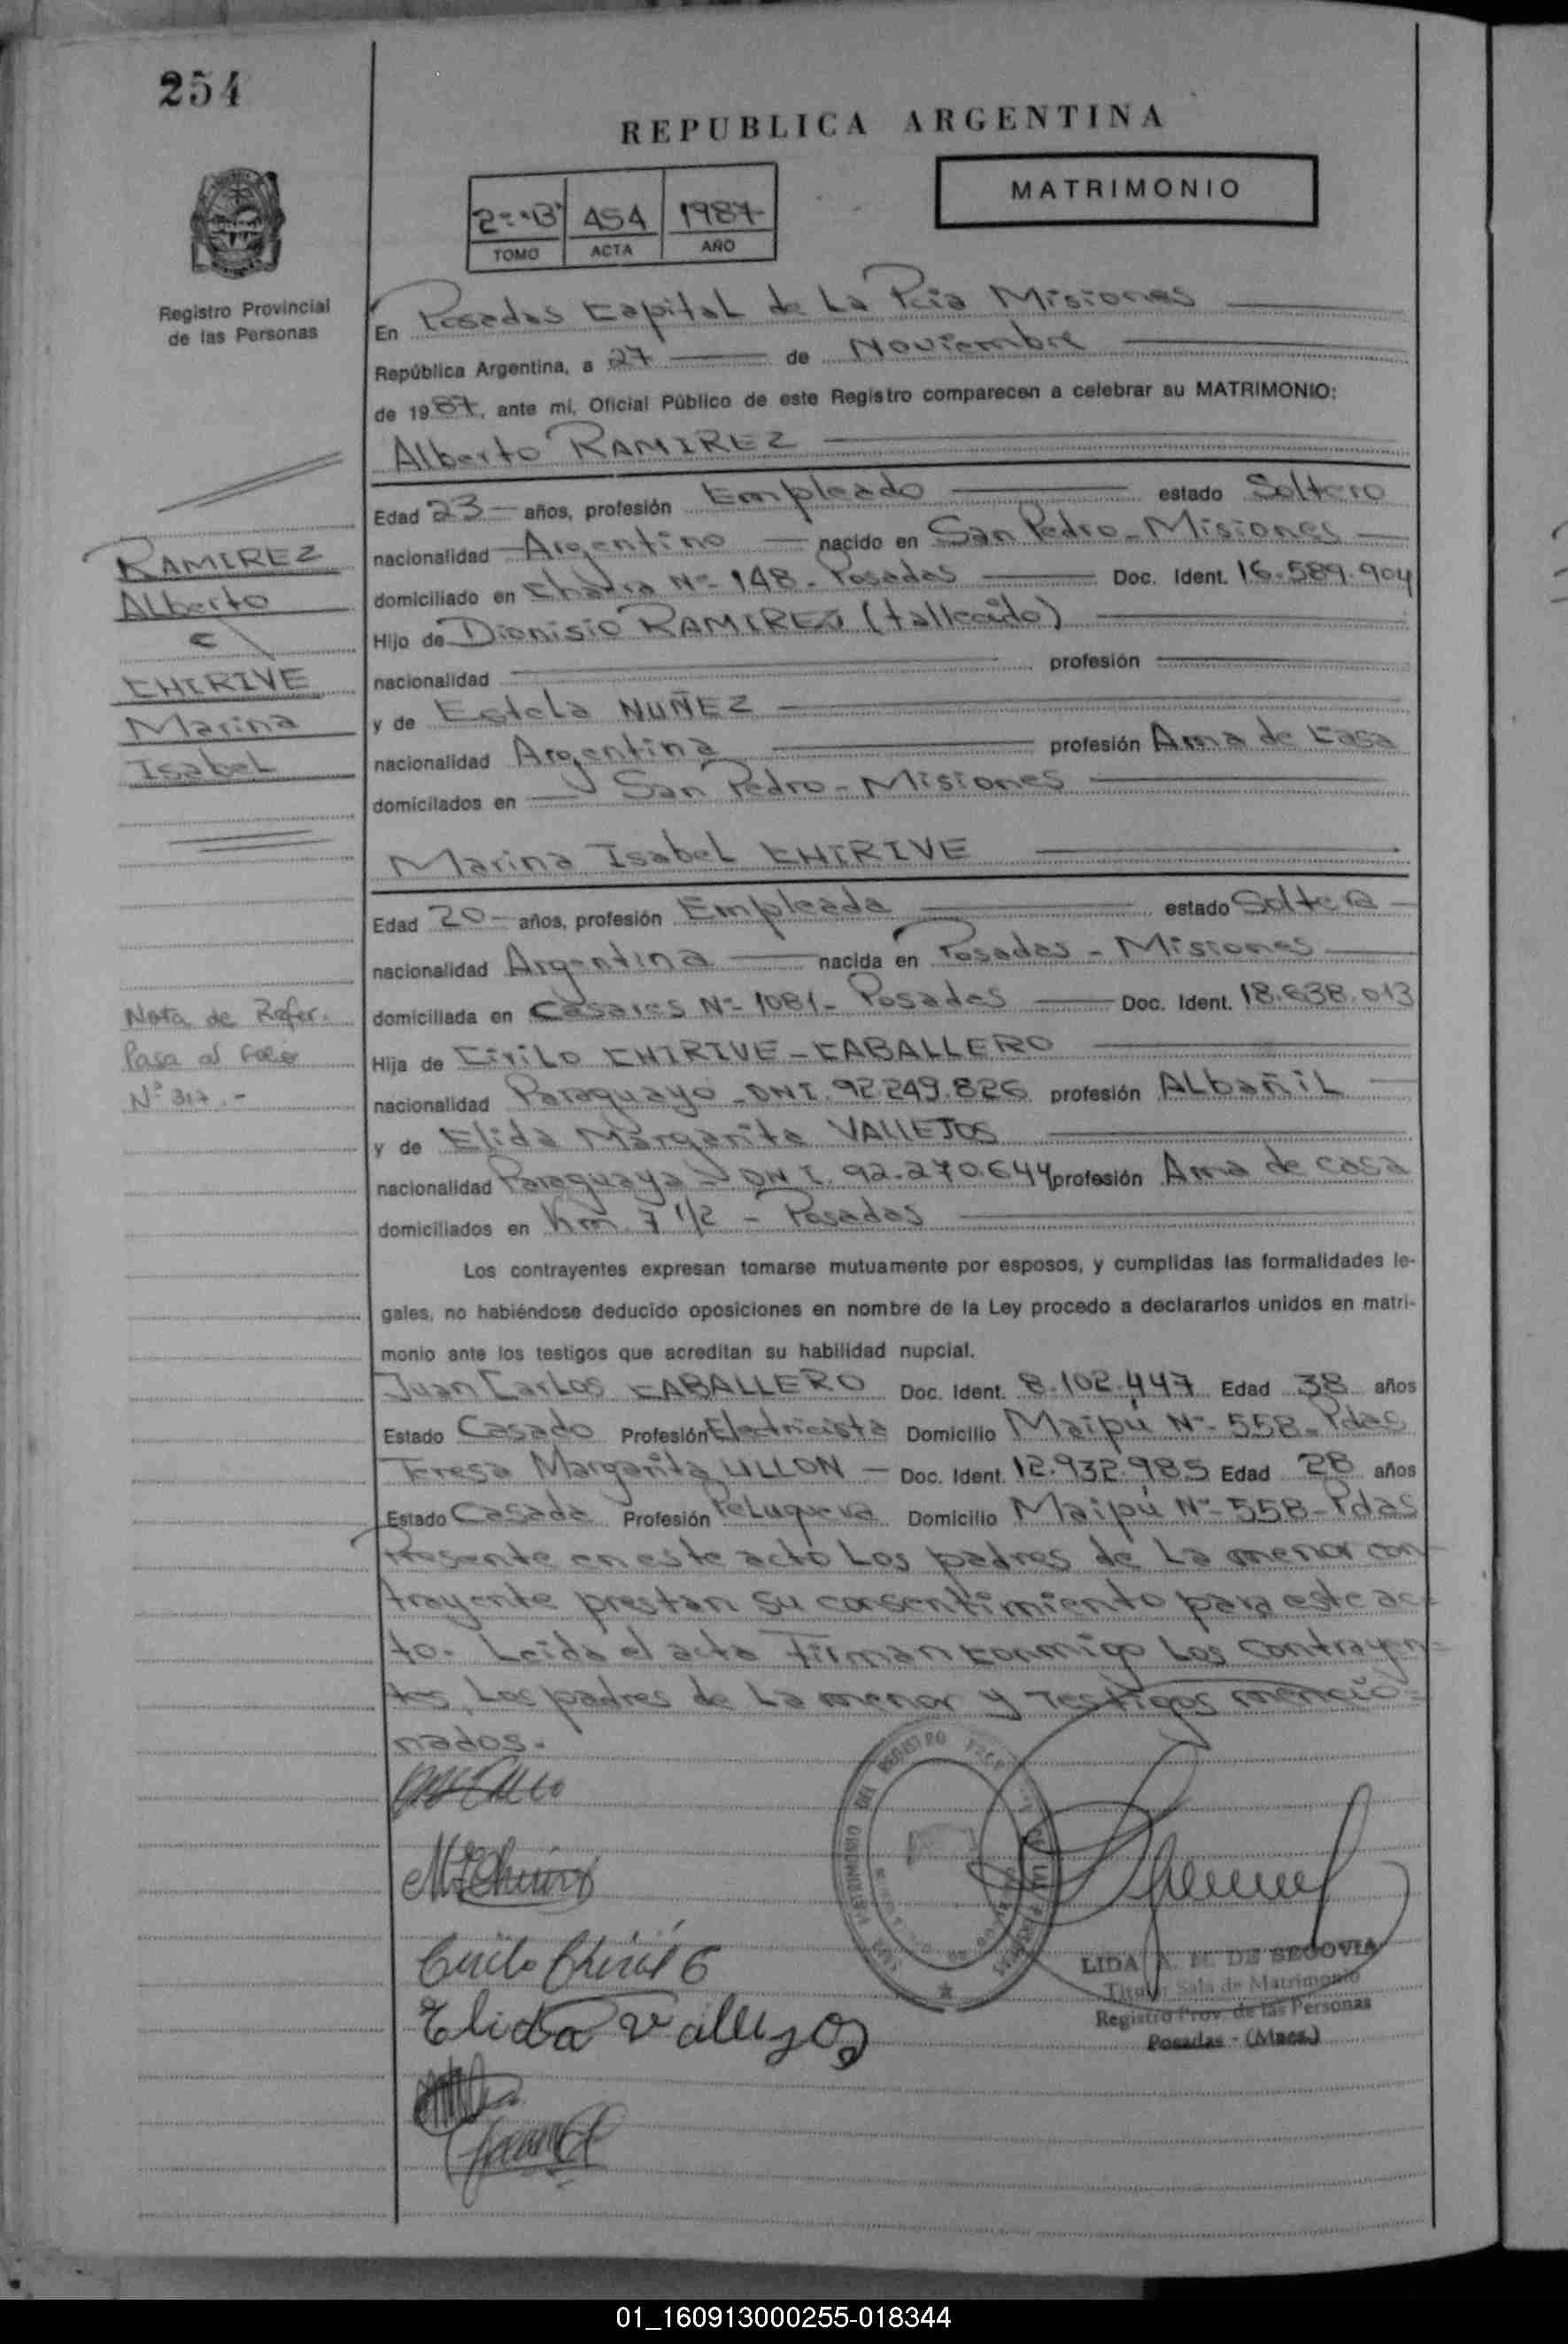 254
REPUBLICA ARGENTINA
MATRIMONIO
2º "B" 454 1987
TOMO ACTA AÑO
Registro Provincial
de las Personas
En Posadas Capital de La Pcia Misiones
República Argentina, a 27 de Noviembre
de 1987, ante mí, Oficial Público de este Registro comparecen a celebrar su MATRIMONIO:
Alberto RAMIREZ
Edad 23 años, profesión Empleado estado Soltero
nacionalidad Argentino nacido en San Pedro - Misiones
domiciliado en Chacra Nº 148 - Posadas Doc. Ident. 16.589.904
Hijo de Dionisio RAMIREZ (fallecido)
nacionalidad profesión
y de Estela NUÑEZ
nacionalidad Argentina profesión Ama de Casa
domicilados en San Pedro - Misiones
RAMIREZ
Alberto
c\
CHIRIVE
Marina
Isabel
Marina Isabel CHIRIVE
Edad 20 años, profesión Empleada estado Soltera
nacionalidad Argentina nacida en Posadas - Misiones
domiciliada en Casares Nº 1081 - Posadas Doc. Ident. 18.638.013
Hija de Cirilo CHIRIVE - CABALLERO
nacionalidad Paraguayo - DNI. 92.249.826 profesión Albañil
y de Elida Margarita VALLEJOS
nacionalidad Paraguaya - DNI. 92.270.644 profesión Ama de casa
domiciliados en Km. 7 1/2 - Posadas
Nota de Refer.
Pasa al folio
Nº 317.-
Los contrayentes expresan tomarse mutuamente por esposos, y cumplidas las formalidades le-
gales, no habiéndose deducido oposiciones en nombre de la Ley procedo a declararlos unidos en matri-
monio ante los testigos que acreditan su habilidad nupcial.
Juan Carlos CABALLERO Doc. Ident. 8.102.447 Edad 38 años
Estado Casado Profesión Electricista Domicilio Maipú Nº 558 - Pdas
Teresa Margarita ULLON - Doc. Ident. 12.932.985 Edad 28 años
Estado Casada Profesión Peluquera Domicilio Maipú Nº 558 - Pdas
Presente en este acto Los padres de La menor con-
trayente prestan su consentimiento para este ac-
to. Leída el acta Firman conmigo Los contrayen=
tes, Los padres de La menor y Testigos mencio=
nados.-
Cirilo Chirivé
Elida Vallejos
LIDA A. M. DE SEGOVIA
Titular Sala de Matrimonio
Registro Prov. de las Personas
Posadas - (Mnes.)
01_160913000255-018344